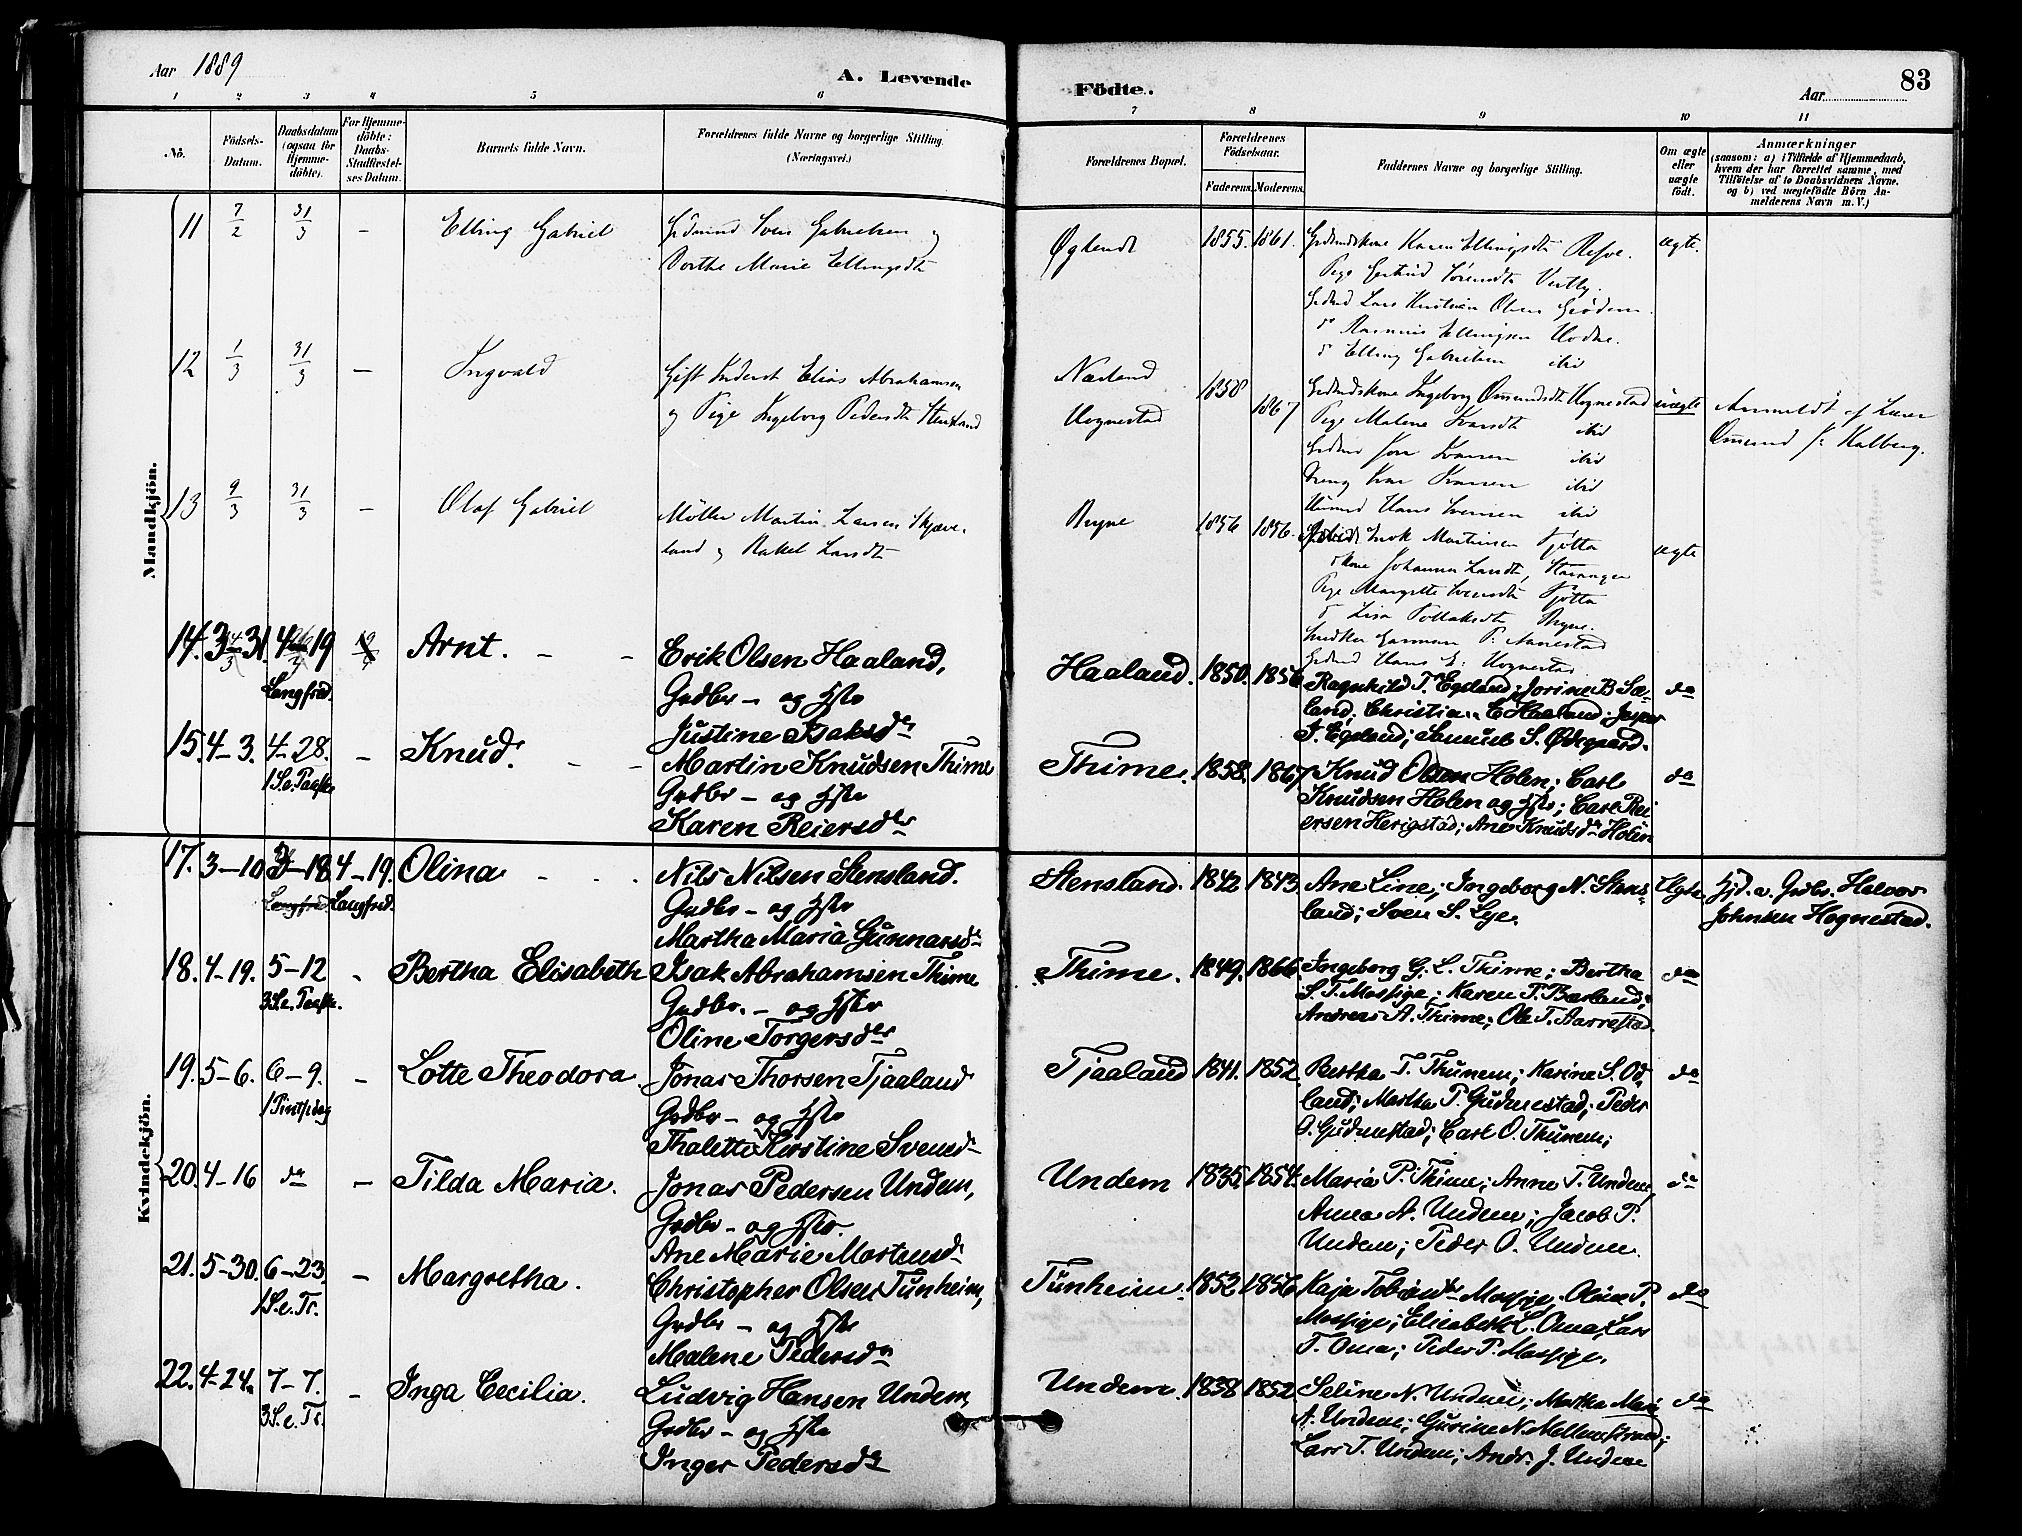 Aar 1889
A. Levende
Födte.
Aar
83
1 2 3 4 5 6 7 8 9 10 11
No.
Födsels-
Datum.
Daabsdatum
(ogsaa for
Hjemme-
döbte).
For Hjemme-
döbte:
Daabs-
Stadfæstel-
ses Datum.
Barnets fulde Navn.
Forældrenes fulde Navne og borgerlige Stilling.
(Næringsvei.)
Forældrenes Bopæl.
Forældrenes
Födselsaar.
Faderens. Moderens.
Faddernes Navne og borgerlige Stilling.
Om ægte
eller
uægte
født.
Anmærkninger
(saasom: a) i Tilfælde af Hjemmedaab,
hvem der har forrettet samme, med
Tilföielse af to Daabsvidners Navne.
og b) ved uægtefödte Börn An-
melderens Navn m. V.)
Mandkjön.
11 7/2 31/3 - Elling Gabriel
Grdmand Sven Gabrielsen og
Dorthe Marie Ellingsdt
Øglendt 1855. 1861.
Grdmdskone Karen Ellingsdt Refve.
Pige Gertrud Sörensdt Vestly.
Grdmd Lars Kristian Olsen
do Rasmus Ellingsen Hodne.
do Elling Gabrielsen ibid
ægte.
12 1/3 31/3 - Ingvald
Gift Inderst Elias Abrahamsen
og Pige Ingeborg Pedersdt
Nærland
Hognestad
1858 1867
Grdmdskone Ingeborg Omundsdt Hognestad
Pige Malene Ivarsdt ibid
Grdmd Jon Ivarsen ibid
Dreng Ivar Ivarsen ibid
Huusmd Hans Svensen ibid
uægte
Anmeldt af Lærer
Omund Kalberg.
13 9/3 31/3 - Olaf Gabriel
Möller Martin Larsen Skjæve-
land og Rakel Larsdt
Bryne 1856 1856.
Enok Martinsen Fjötta
do Kone Johanna Larsdt, Stavanger
Pige Margrethe Svensdt Fjötta
do Lisa Tollaksdt Bryne.
Snedker German P. Aanestad
Grdmd Hans E. Hognestad
ægte
14. 3 - 31. 4 - 19
Langfred.
Arnt. - -
Erik Olsen Haaland,
Grdbr - og Hstr
Justine Isaksdr
Haaland. 1850. 1856
Ragnhild T. Egeland; Jorine B. Sæ-
land; Christian E. Haaland. Jesper
J. Egeland; Samuel S. Ødegaard.
do
15. 4 - 3. 4 - 28.
1 S. e. Paaske
- Knud. - -
Martin Knudsen Thime
Grdbr - og Hstr
Karen Reiersdtr
Thime. 1858. 1867
Knud Olsen Holen; Carl
Knudsen Holen og Hstr; Carl Rei
ersen Herigstad; Ane Knudsdr Holen
do
Kvindekjön.
17. 3 - 10 - 18 4 - 19.
Langfred. Langfred.
Olina - - -
Nils Nilsen Stensland.
Grdbr - og Hstr
Martha Maria Gunnarsdr
Stensland. 1842 1843
Ane Line; Ingeborg N. Stens-
land; Sven S. Lye.
Ægte
Hjd. a. Grdbr. Halvor
Johnsen Hognestad.
18. 4 - 19. 5 - 12
3 S. e. Paaske.
- Bertha Elisabeth
Isak Abrahamsen Thime
Grdbr. - og Hstr
Oline Torgersdtr
Thime. 1849. 1866.
Ingeborg G. L. Thime; Bertha
S. T. Mossige; Karen T. Bærland;
Andreas A. Thime; Ole T. Aarrestad.
do
19. 5 - 6. 6 - 9.
1 Pintsedag
- Lotte Theodora
Jonas Thorsen Tjaaland
Grdbr - og Hstr
Thalette Kirstine Svensdr
Tjaaland 1841. 1852.
Bertha T. Thunem; Karine S. Od-
land; Martha P. Gudmestad; Peder
O. Gudmestad; Carl O. Thunem;
do
20. 4 - 16 do - Tilda Maria.
Jonas Pedersen Undem,
Grdbr - og Hstr.
Ane Marie Mortensdr
Undem 1835. 1854.
Maria P. Thime; Anne T. Undem;
Anna A. Undem; Jacob P.
Undem; Peder O. Undem.
do
21. 5 - 30. 6 - 23.
1 S. e. Tr.
- Margretha.
Christopher Olsen Tunheim,
Grdbr - og Hstr
Malene Pedersdr
Tunheim. 1852 1856
Kaja Tobiasdr Mossige; Oline P.
Mossige; Elisabeth L. Oma, Lars
T. Oma; Peder P. Mossige.
do
22. 4 - 24. 7 - 7.
3 S. e. Tr.
- Inga Cecilia.
Ludvig Hansen Undem,
Grdbr - og Hstr
Inger Pedersdr
Undem. 1838 1852
Seline N. Undem; Martha Maria
A. Undem; Gurine N. Mellemstrand;
Lars T. Undem; Andr. J. Undem
do